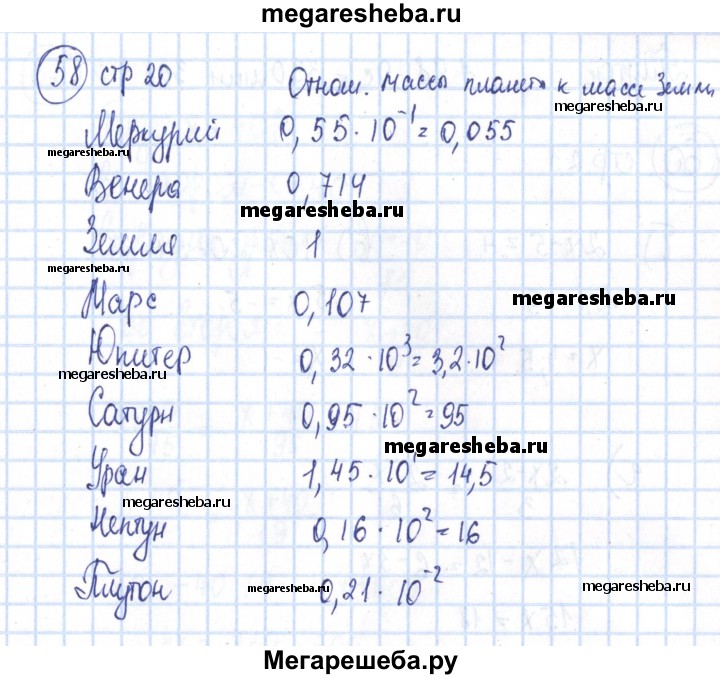 megaresheba.ru
58 стр 20 Отнош. массы планет к массе Земли
megaresheba.ru
Меркурий 0,55·10⁻¹ = 0,055
megaresheba.ru
Венера 0,714
megaresheba.ru
Земля 1
megaresheba.ru
Марс 0,107
megaresheba.ru
Юпитер 0,32·10³ = 3,2·10²
megaresheba.ru
Сатурн 0,95·10² = 95
megaresheba.ru
Уран 1,45·10¹ = 14,5
megaresheba.ru
Нептун 0,16·10² = 16
Плутон 0,21·10⁻²
megaresheba.ru
megaresheba.ru
Мегарешеба.ру